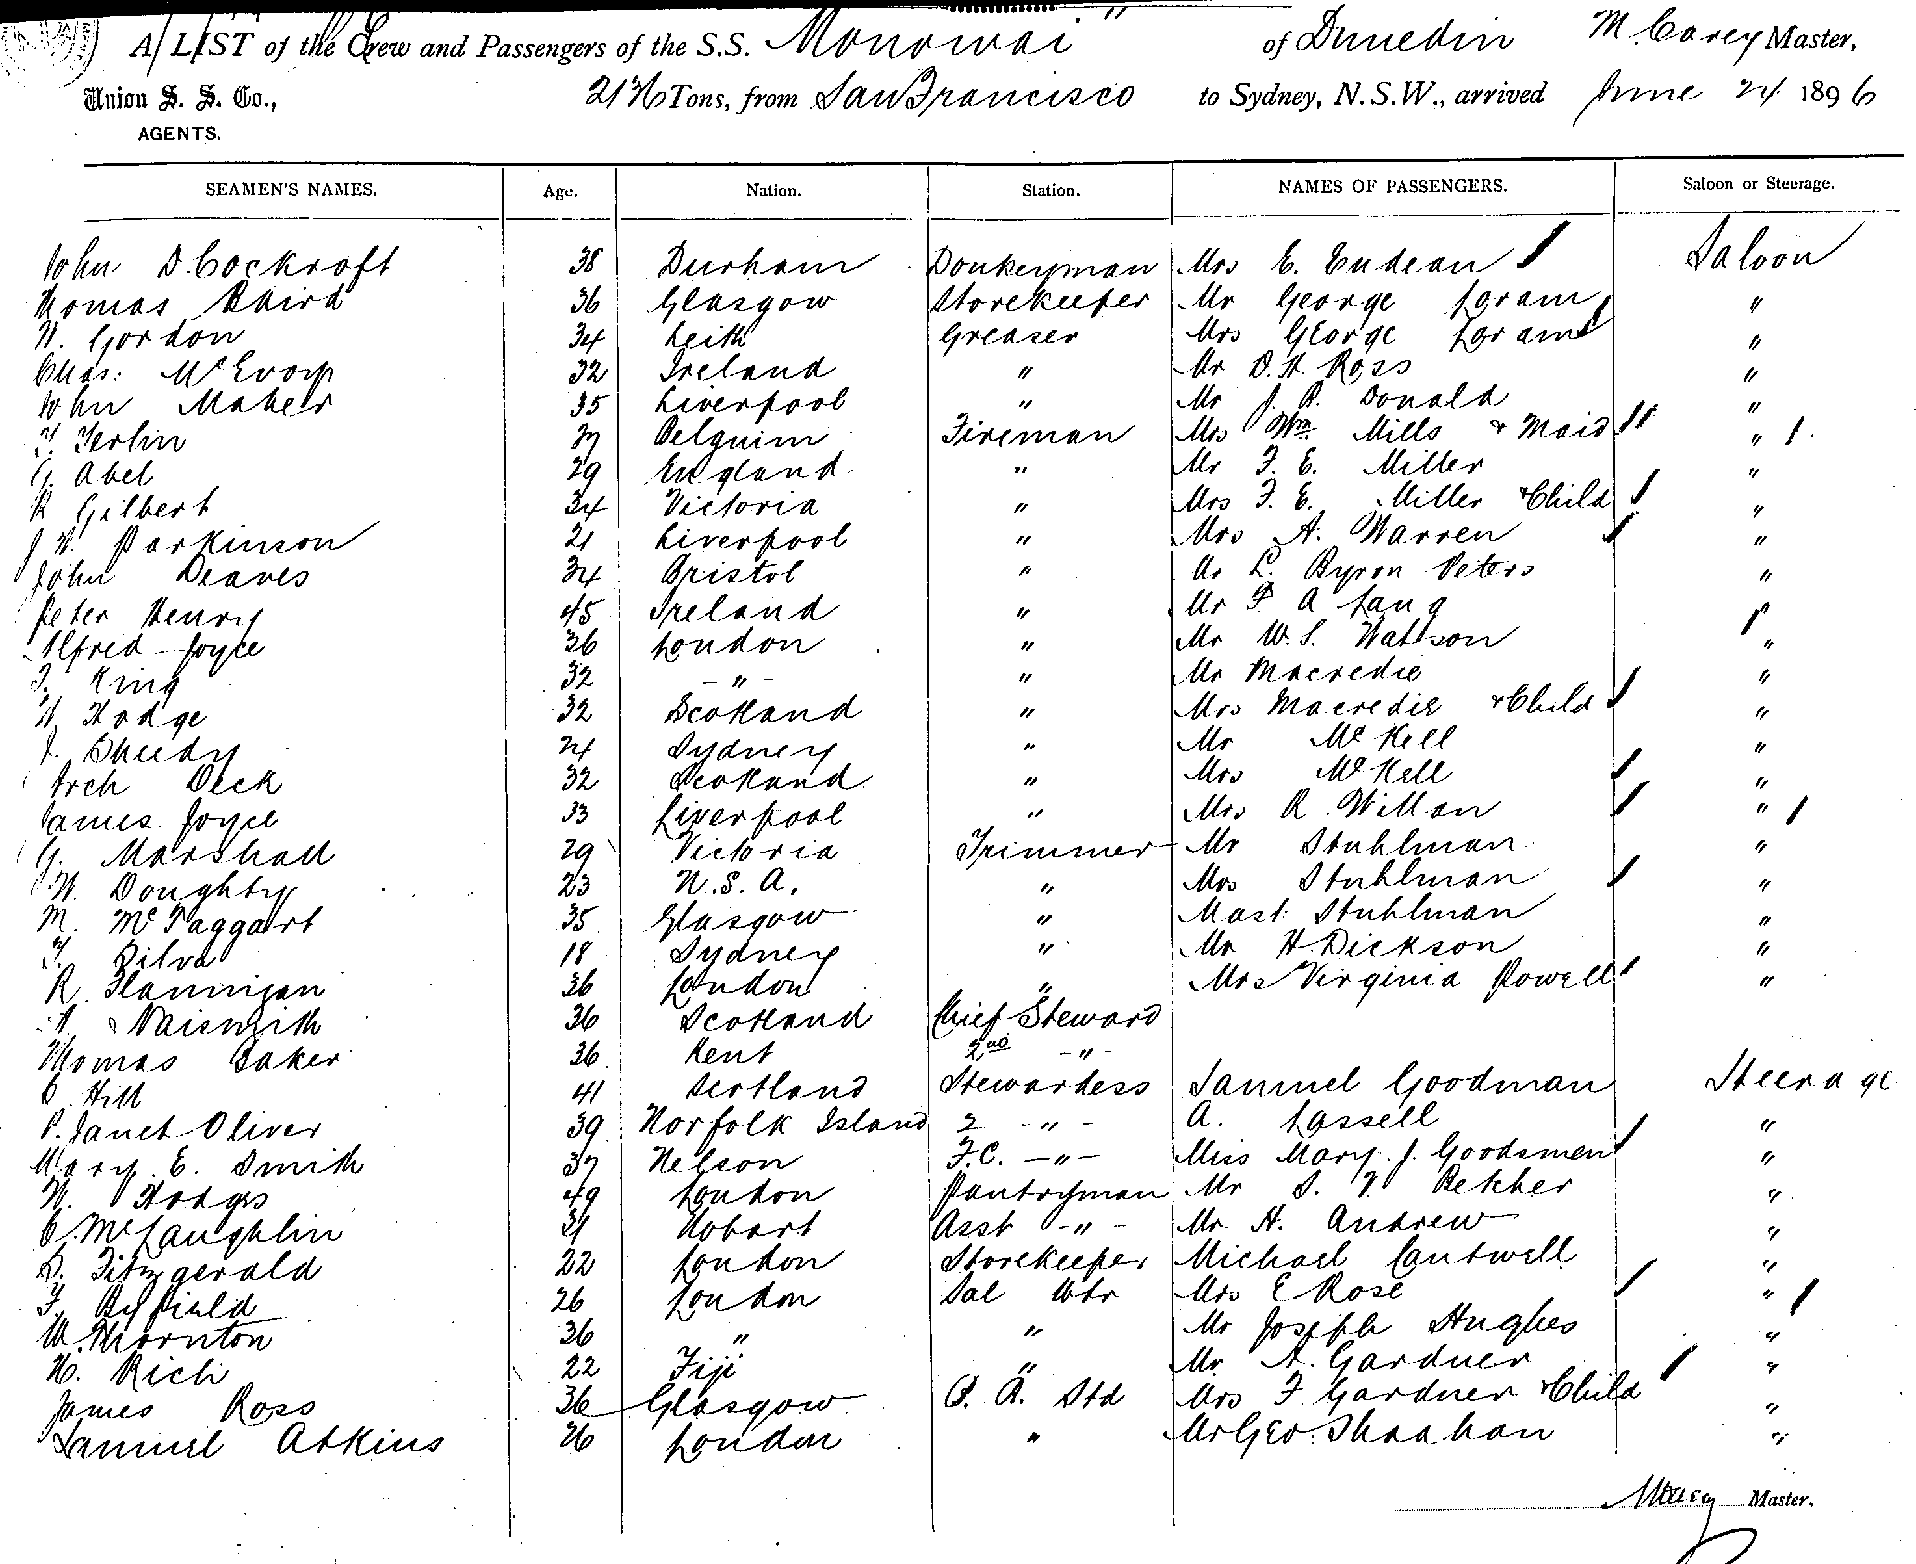 A LIST of the Crew and Passengers of the S.S. "Monowai" of Dunedin M. Carey Master,
Union S. S. Co., 2136 Tons, from San Francisco to Sydney, N.S.W., arrived June 24 1896
AGENTS.
SEAMEN'S NAMES. Age. Nation. Station. NAMES OF PASSENGERS. Saloon or Steerage.
John D. Cockroft 38 Durham Donkeyman Mrs E. Eudean Saloon
Thomas Baird 36 Glasgow Storekeeper Mr George Loram "
W. Gordon 34 Leith Greaser Mrs George Loram "
Chas: McEvoy 32 Ireland " Mr D. H. Ross "
John Maher 35 Liverpool " Mr J. R. Donald "
F. Terlin Belguim Fireman Mrs Wm Mills & Maid "
G. Abel 29 England " Mr F. E. Miller "
R Gilbert 34 Victoria " Mrs F. E. Miller & Child "
J W. Parkinson 21 Liverpool " Mrs A. Warren "
John Deaves 34 Bristol " Mr L. Byron Peters "
Peter Henry 45 Ireland " Mr F A Lang
Alfred Joyce 36 London " Mr W. S. Watson "
King 32 - " - " Mr Macredie "
W. Hodge 32 Scotland " Mrs Macredie & Child "
J. Sheedy 24 Sydney " Mr McKell "
Arch Deck 32 Scotland " Mrs McKell "
James Joyce 33 Liverpool " Mrs R. Willan "
G. Marshall 29 Victoria Trimmer Mr Stuhlman "
W. Doughty 23 U.S.A. " Mrs Stuhlman "
M. McTaggart 35 Glasgow " Mast. Stuhlman "
F. Silva 18 Sydney " Mr H Dickson "
R. Flannigan 36 London " Mrs Virginia Powell "
Naismith 36 Scotland Chief Steward
Thomas Baker 36 Kent 2nd - " -
C Hill 41 Scotland Stewardess Samuel Goodman Steerage
P. Janet Oliver 39 Norfolk Island 2 - " - A. Lassell "
Mary E. Smith 37 Nelson F.C. - " - Miss Mary J. Goodsmen "
W. Hodges 49 London Pantryman Mr S. F. Betcher "
C. McLaughlin 31 Hobart Asst - " - Mr H. Andrew "
D. Fitzgerald 22 London Storekeeper Michael Cantwell "
F. Byfield 26 London Sal Wtr Mrs E Rose "
W. Thornton 36 " " Mr Joseph Hughes "
H. Rich 22 Fiji " Mr A. Gardner "
James Ross 36 Glasgow B. R. Std Mrs F Gardner & Child "
Samuel Atkins 26 London " Mr Geo: Shaahan "
MCarey Master.